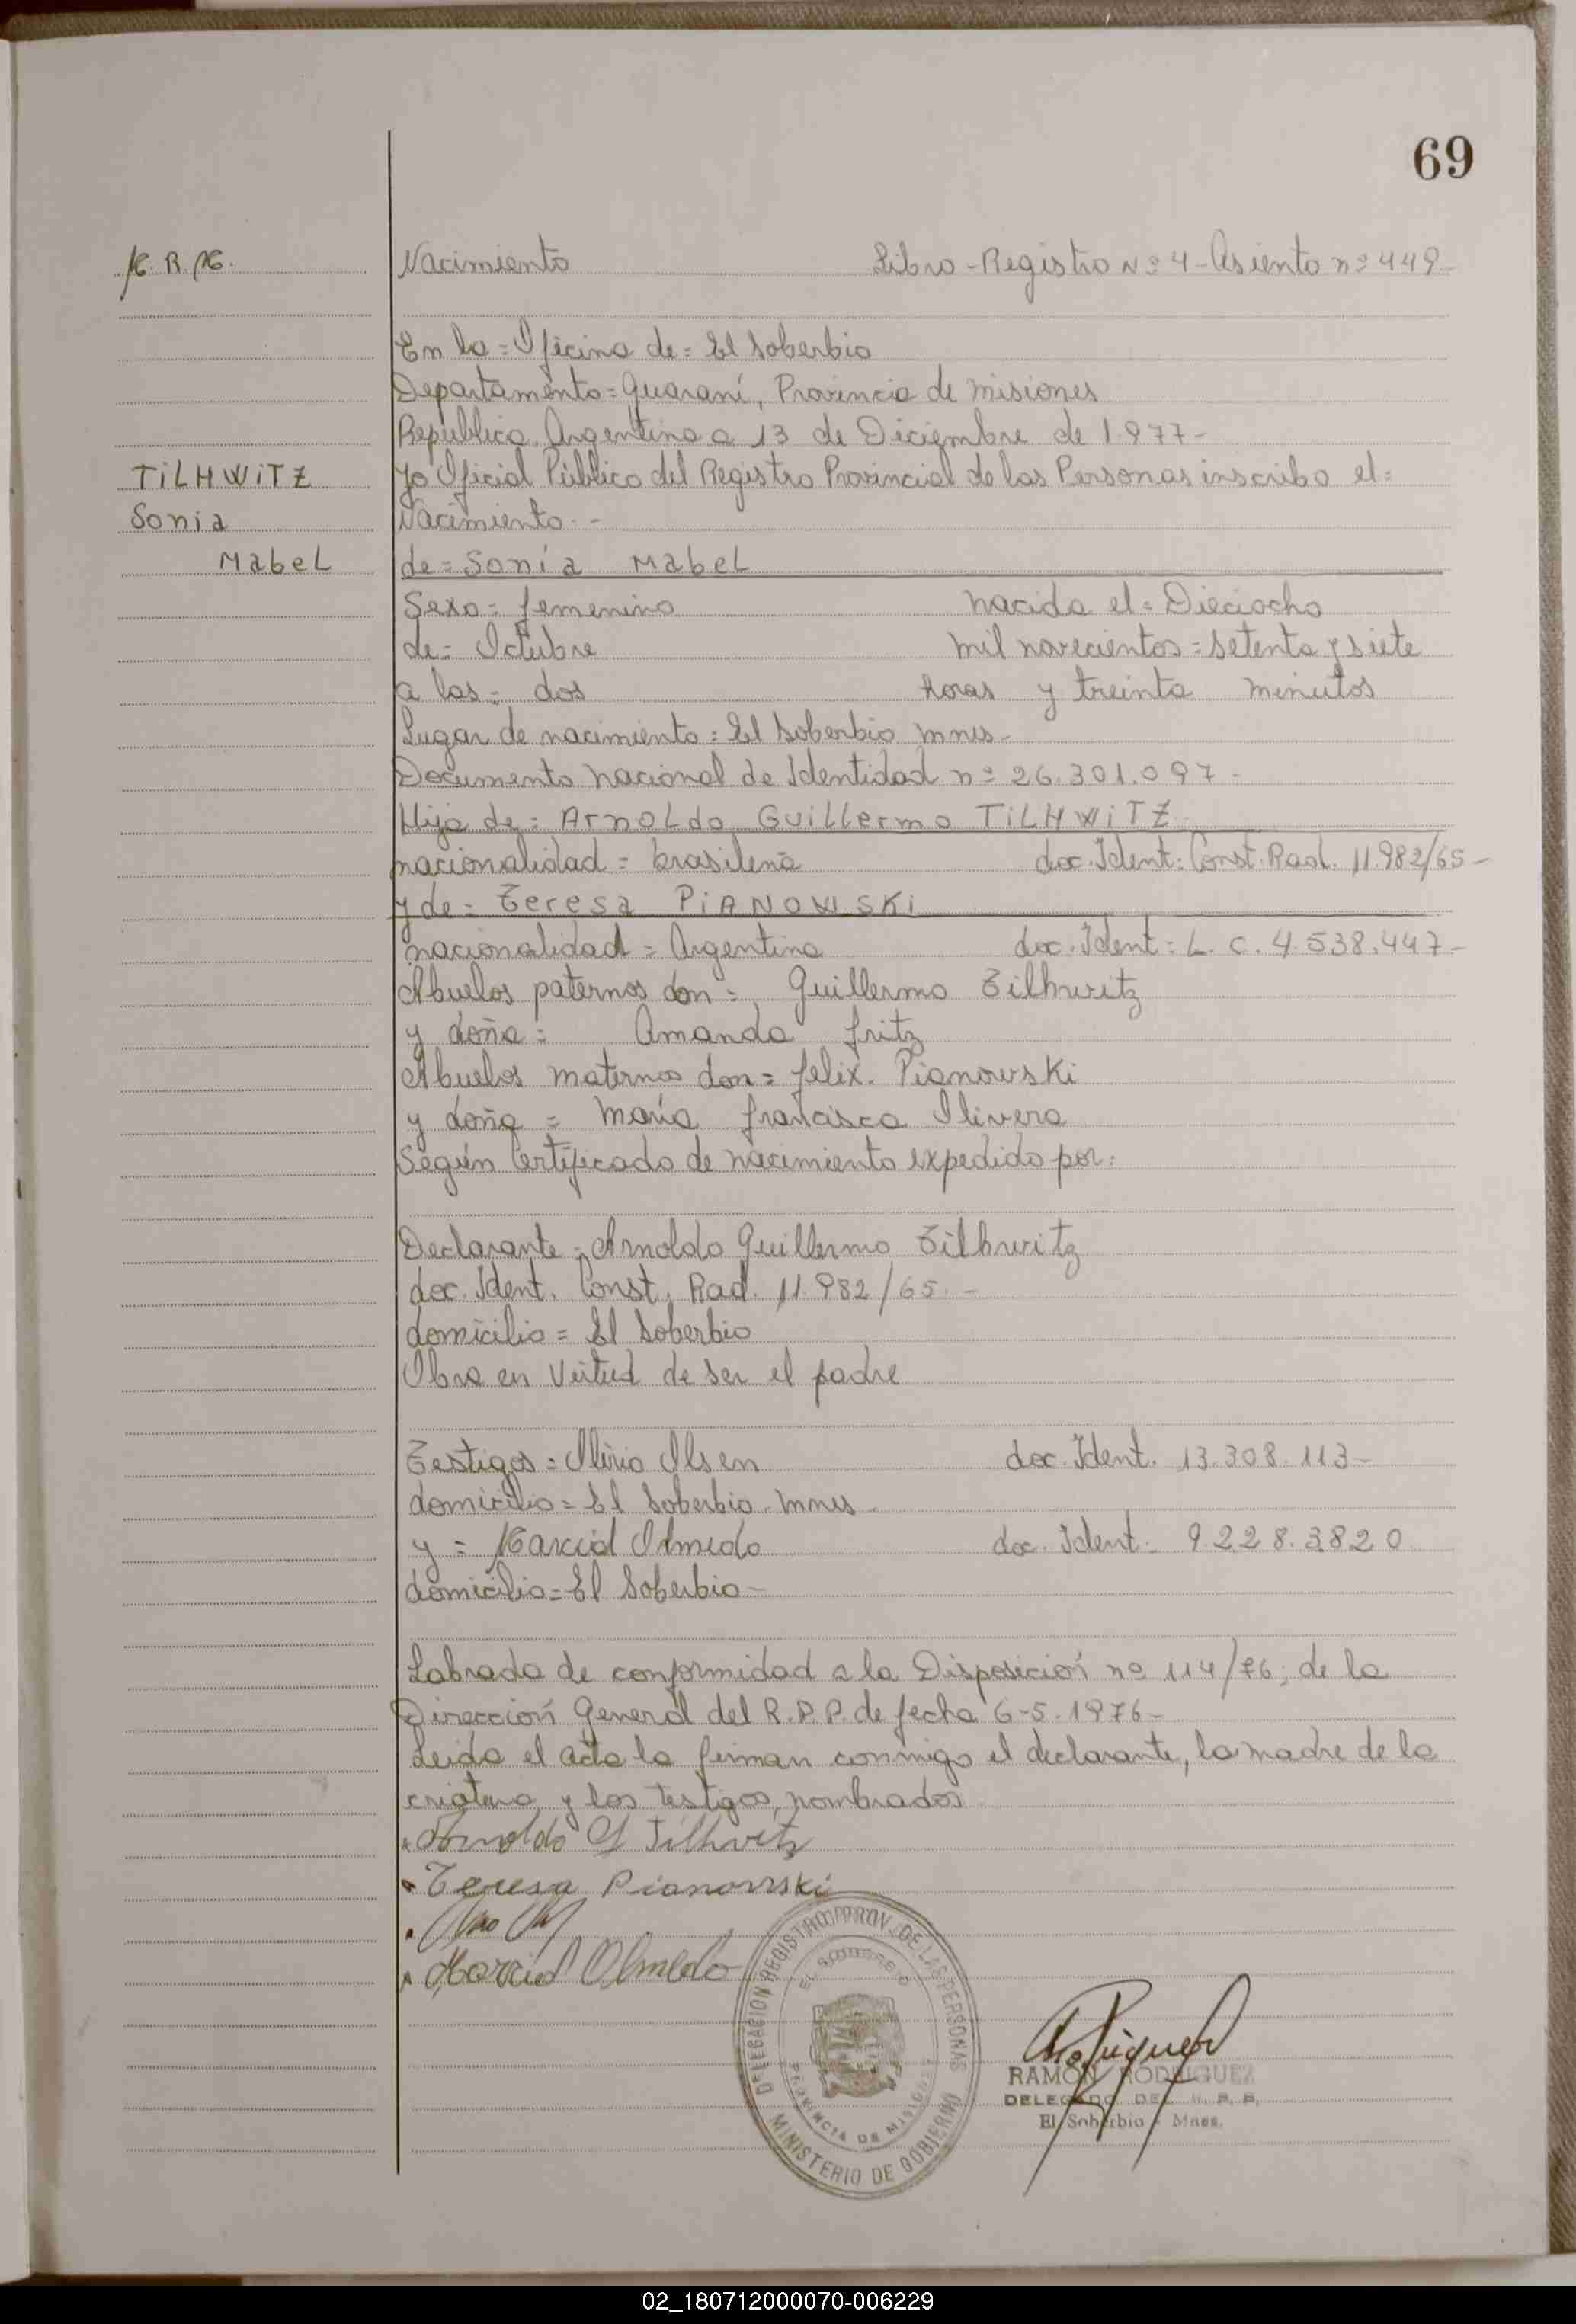 69
Nacimiento Libro-Registro Nº 4-Asiento nº 449-
En la = Oficina de = El Soberbio
Departamento = Guaraní, Provincia de Misiones
República Argentina a 13 de Diciembre de 1.977-
TiLHWiTZ yo Oficial Público del Registro Provincial de las Personas inscribo el =
Sonia Nacimiento. -
Mabel de = Sonia Mabel
Sexo = femenino nacida el = Dieciocho
de = Octubre mil novecientos = setenta y siete
a las = dos horas y treinta minutos
Lugar de nacimiento = El Soberbio Mnes-
Documento Nacional de Identidad nº 26.301.097-
Hija de = Arnoldo Guillermo TiLHWiTZ
nacionalidad = brasileña doc. Ident: Const. Rad. 11.982/65-
y de = Teresa PiANOWSKi
nacionalidad = Argentina doc. Ident: L. C. 4.538.447-
Abuelos paternos don = Guillermo Tilhwitz
y doña = Amanda Fritz
Abuelos maternos don = Felix. Pianowski
y doña = María Francisca Olivera
Según Certificado de nacimiento expedido por:
Declarante = Arnoldo Guillermo Tilhwitz
doc. Ident. Const. Rad. 11.982/65.-
domicilio = El Soberbio
Obra en Virtud de ser el padre
Testigos = Olirio Olsen doc. Ident. 13.308.113-
domicilio = El Soberbio. Mnes-
y = Marcial Olmedo doc. Ident. 9.228.3820
domicilio = El Soberbio-
Labrada de conformidad a la Disposición nº 114/76; de la
Dirección General del R.P.P. de fecha 6-5-1976-
Leida el acta la firman conmigo el declarante, la madre de la
criatura y los testigos nombrados
Arnoldo G Tilhvitz
Teresa Pianowski
Marcial Olmedo
DELEGACION REGISTRO PROV. DE LAS PERSONAS
EL SOBERBIO
PROVINCIA DE MISIONES
MINISTERIO DE GOBIERNO
RAMON RODRIGUEZ
DELEGADO DEL R. P. P.
El Soberbio - Mnes.
02_180712000070-006229